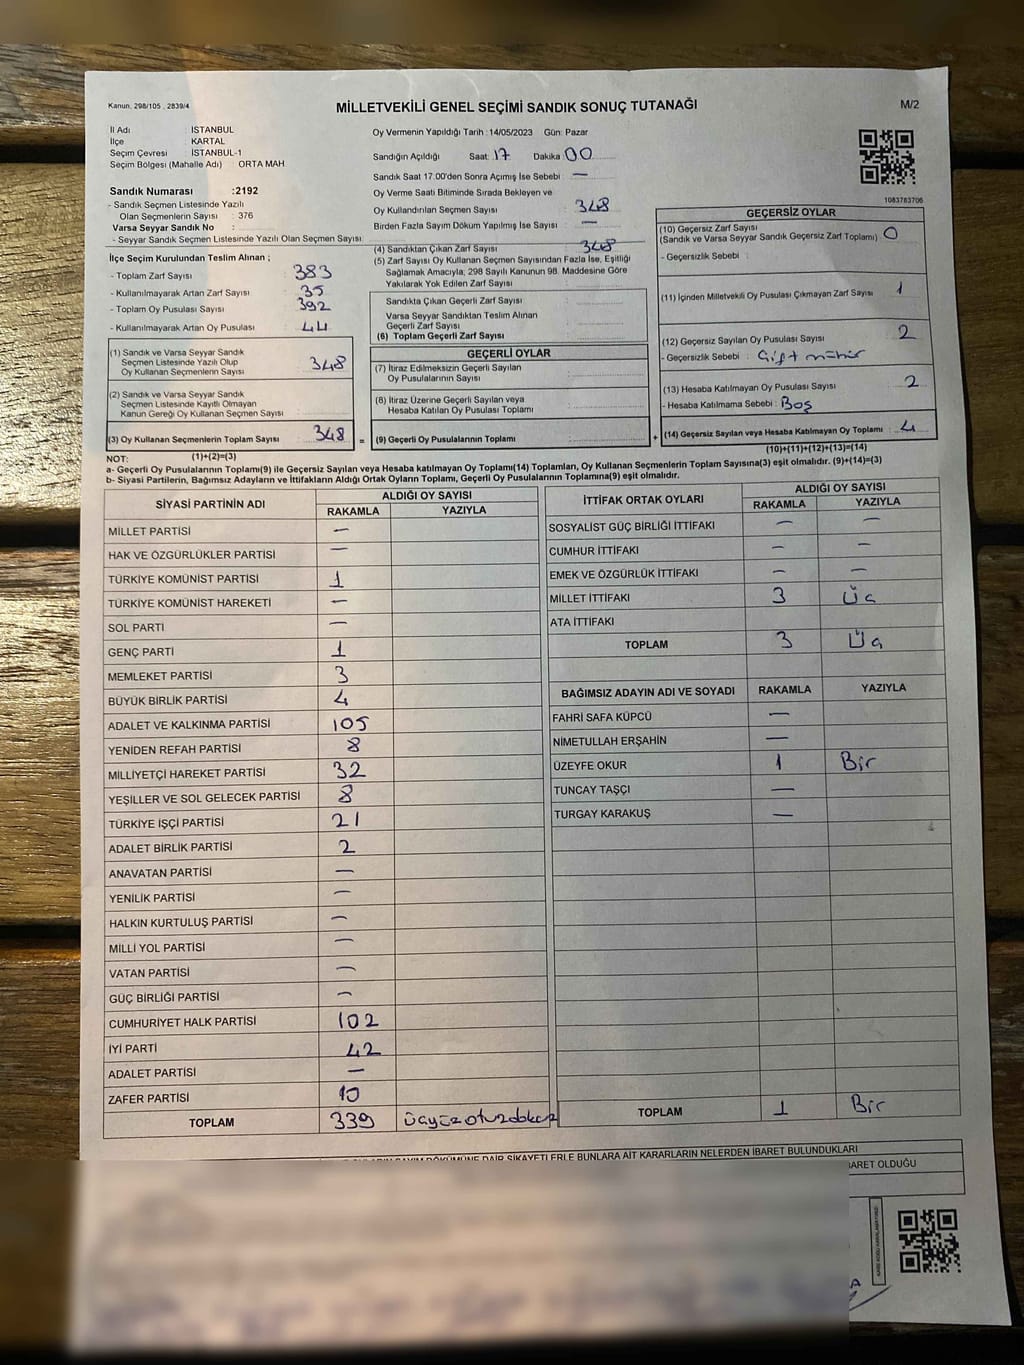 Kanun, 298/105 , 2839/4
MİLLETVEKİLİ GENEL SEÇİMİ SANDIK SONUÇ TUTANAĞI
M/2
İl Adı : İSTANBUL
İlçe : KARTAL
Seçim Çevresi : İSTANBUL-1
Seçim Bölgesi (Mahalle Adı) : ORTA MAH
Sandık Numarası :2192
- Sandık Seçmen Listesinde Yazılı
Olan Seçmenlerin Sayısı : 376
Varsa Seyyar Sandık No :
- Seyyar Seçmen Listesinde Yazılı Olan Seçmen Sayısı:
Oy Vermenin Yapıldığı Tarih :14/05/2023 Gün: Pazar
Sandığın Açıldığı Saat: 17 Dakika: 00
Sandık Saat 17.00'den Sonra Açımış İse Sebebi : —
Oy Verme Saati Bitiminde Sırada Bekleyen ve
Oy Kullandırılan Seçmen Sayısı : 348
Birden Fazla Sayım Döküm Yapılmış İse Sayısı : —
1083783706
İlçe Seçim Kurulundan Teslim Alınan ;
- Toplam Zarf Sayısı : 383
- Kullanılmayarak Artan Zarf Sayısı : 35
- Toplam Oy Pusulası Sayısı : 392
- Kullanılmayarak Artan Oy Pusulası : 44
(1) Sandık ve Varsa Seyyar Sandık
Seçmen Listesinde Yazılı Olup
Oy Kullanan Seçmenlerin Sayısı : 348
(2) Sandık ve Varsa Seyyar Sandık
Seçmen Listesinde Kayıtlı Olmayan
Kanun Gereği Oy Kullanan Seçmen Sayısı :
(3) Oy Kullanan Seçmenlerin Toplam Sayısı : 348
(4) Sandıktan Çıkan Zarf Sayısı : 348
(5) Zarf Sayısı Oy Kullanan Seçmen Sayısından Fazla İse, Eşitliği
Sağlamak Amacıyla, 298 Sayılı Kanunun 98. Maddesine Göre
Yakılarak Yok Edilen Zarf Sayısı :
Sandıkta Çıkan Geçerli Zarf Sayısı :
Varsa Seyyar Sandıktan Teslim Alınan
Geçerli Zarf Sayısı :
(6) Toplam Geçerli Zarf Sayısı :
GEÇERLİ OYLAR
(7) İtiraz Edilmeksizin Geçerli Sayılan
Oy Pusulalarının Sayısı :
(8) İtiraz Üzerine Geçerli Sayılan veya
Hesaba Katılan Oy Pusulası Toplamı :
= (9) Geçerli Oy Pusulalarının Toplamı :
GEÇERSİZ OYLAR
(10) Geçersiz Zarf Sayısı
(Sandık ve Varsa Seyyar Sandık Geçersiz Zarf Toplamı) : 0
- Geçersizlik Sebebi :
(11) İçinden Milletvekili Oy Pusulası Çıkmayan Zarf Sayısı : 1
(12) Geçersiz Sayılan Oy Pusulası Sayısı : 2
- Geçersizlik Sebebi : Çift mühür
(13) Hesaba Katılmayan Oy Pusulası Sayısı : 2
- Hesaba Katılmama Sebebi : Boş
+ (14) Geçersiz Sayılan veya Hesaba Katılmayan Oy Toplamı : 4
NOT: (1)+(2)=(3)
(10)+(11)+(12)+(13)=(14)
a- Geçerli Oy Pusulalarının Toplamı(9) ile Geçersiz Sayılan veya Hesaba katılmayan Oy Toplamı(14) Toplamları, Oy Kullanan Seçmenlerin Toplam Sayısına(3) eşit olmalıdır. (9)+(14)=(3)
b- Siyasi Partilerin, Bağımsız Adayların ve İttifakların Aldığı Ortak Oyların Toplamı, Geçerli Oy Pusulalarının Toplamına(9) eşit olmalıdır.
SİYASİ PARTİNİN ADI ALDIĞI OY SAYISI
RAKAMLA YAZIYLA
MİLLET PARTİSİ —
HAK VE ÖZGÜRLÜKLER PARTİSİ —
TÜRKİYE KOMÜNİST PARTİSİ 1
TÜRKİYE KOMÜNİST HAREKETİ —
SOL PARTİ —
GENÇ PARTİ 1
MEMLEKET PARTİSİ 3
BÜYÜK BİRLİK PARTİSİ 4
ADALET VE KALKINMA PARTİSİ 105
YENİDEN REFAH PARTİSİ 8
MİLLİYETÇİ HAREKET PARTİSİ 32
YEŞİLLER VE SOL GELECEK PARTİSİ 8
TÜRKİYE İŞÇİ PARTİSİ 21
ADALET BİRLİK PARTİSİ 2
ANAVATAN PARTİSİ —
YENİLİK PARTİSİ —
HALKIN KURTULUŞ PARTİSİ —
MİLLİ YOL PARTİSİ —
VATAN PARTİSİ —
GÜÇ BİRLİĞİ PARTİSİ —
CUMHURİYET HALK PARTİSİ 102
İYİ PARTİ 42
ADALET PARTİSİ —
ZAFER PARTİSİ 10
TOPLAM 339 üçyüzotuzdokuz
İTTİFAK ORTAK OYLARI ALDIĞI OY SAYISI
RAKAMLA YAZIYLA
SOSYALİST GÜÇ BİRLİĞİ İTTİFAKI — —
CUMHUR İTTİFAKI — —
EMEK VE ÖZGÜRLÜK İTTİFAKI — —
MİLLET İTTİFAKI 3 Üç
ATA İTTİFAKI
TOPLAM 3 Üç
BAĞIMSIZ ADAYIN ADI VE SOYADI RAKAMLA YAZIYLA
FAHRİ SAFA KÜPCÜ —
NİMETULLAH ERŞAHİN —
ÜZEYFE OKUR 1 Bir
TUNCAY TAŞÇI —
TURGAY KARAKUŞ —
TOPLAM 1 Bir
SAYIM DÖKÜMÜNE DAİR ŞİKAYETLERLE BUNLARA AİT KARARLARIN NELERDEN İBARET BULUNDUKLARI
OLDUĞU